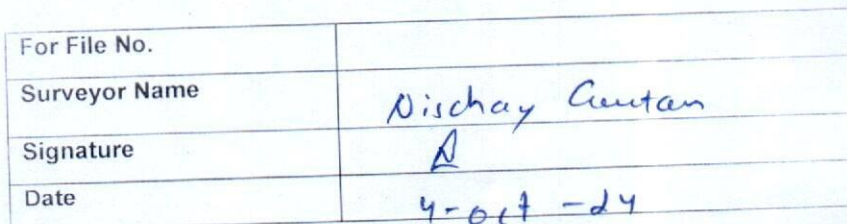 For File No.
Surveyor Name Nischay Gautam
Signature
Date 4-oct-24